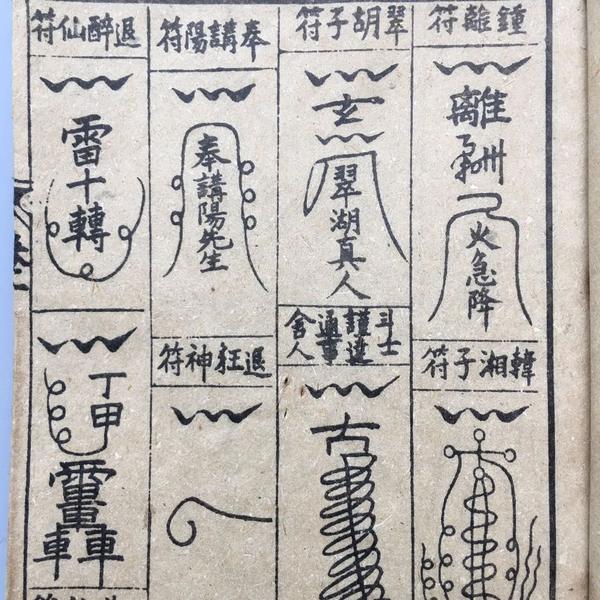 鍾離符
離
火急降
韓湘子符
翠胡子符
玄
翠湖真人
斗士
謹達
通事
舍人
古
奉講陽符
奉講陽先生
退狂神符
退醉仙符
雷十轉
丁甲